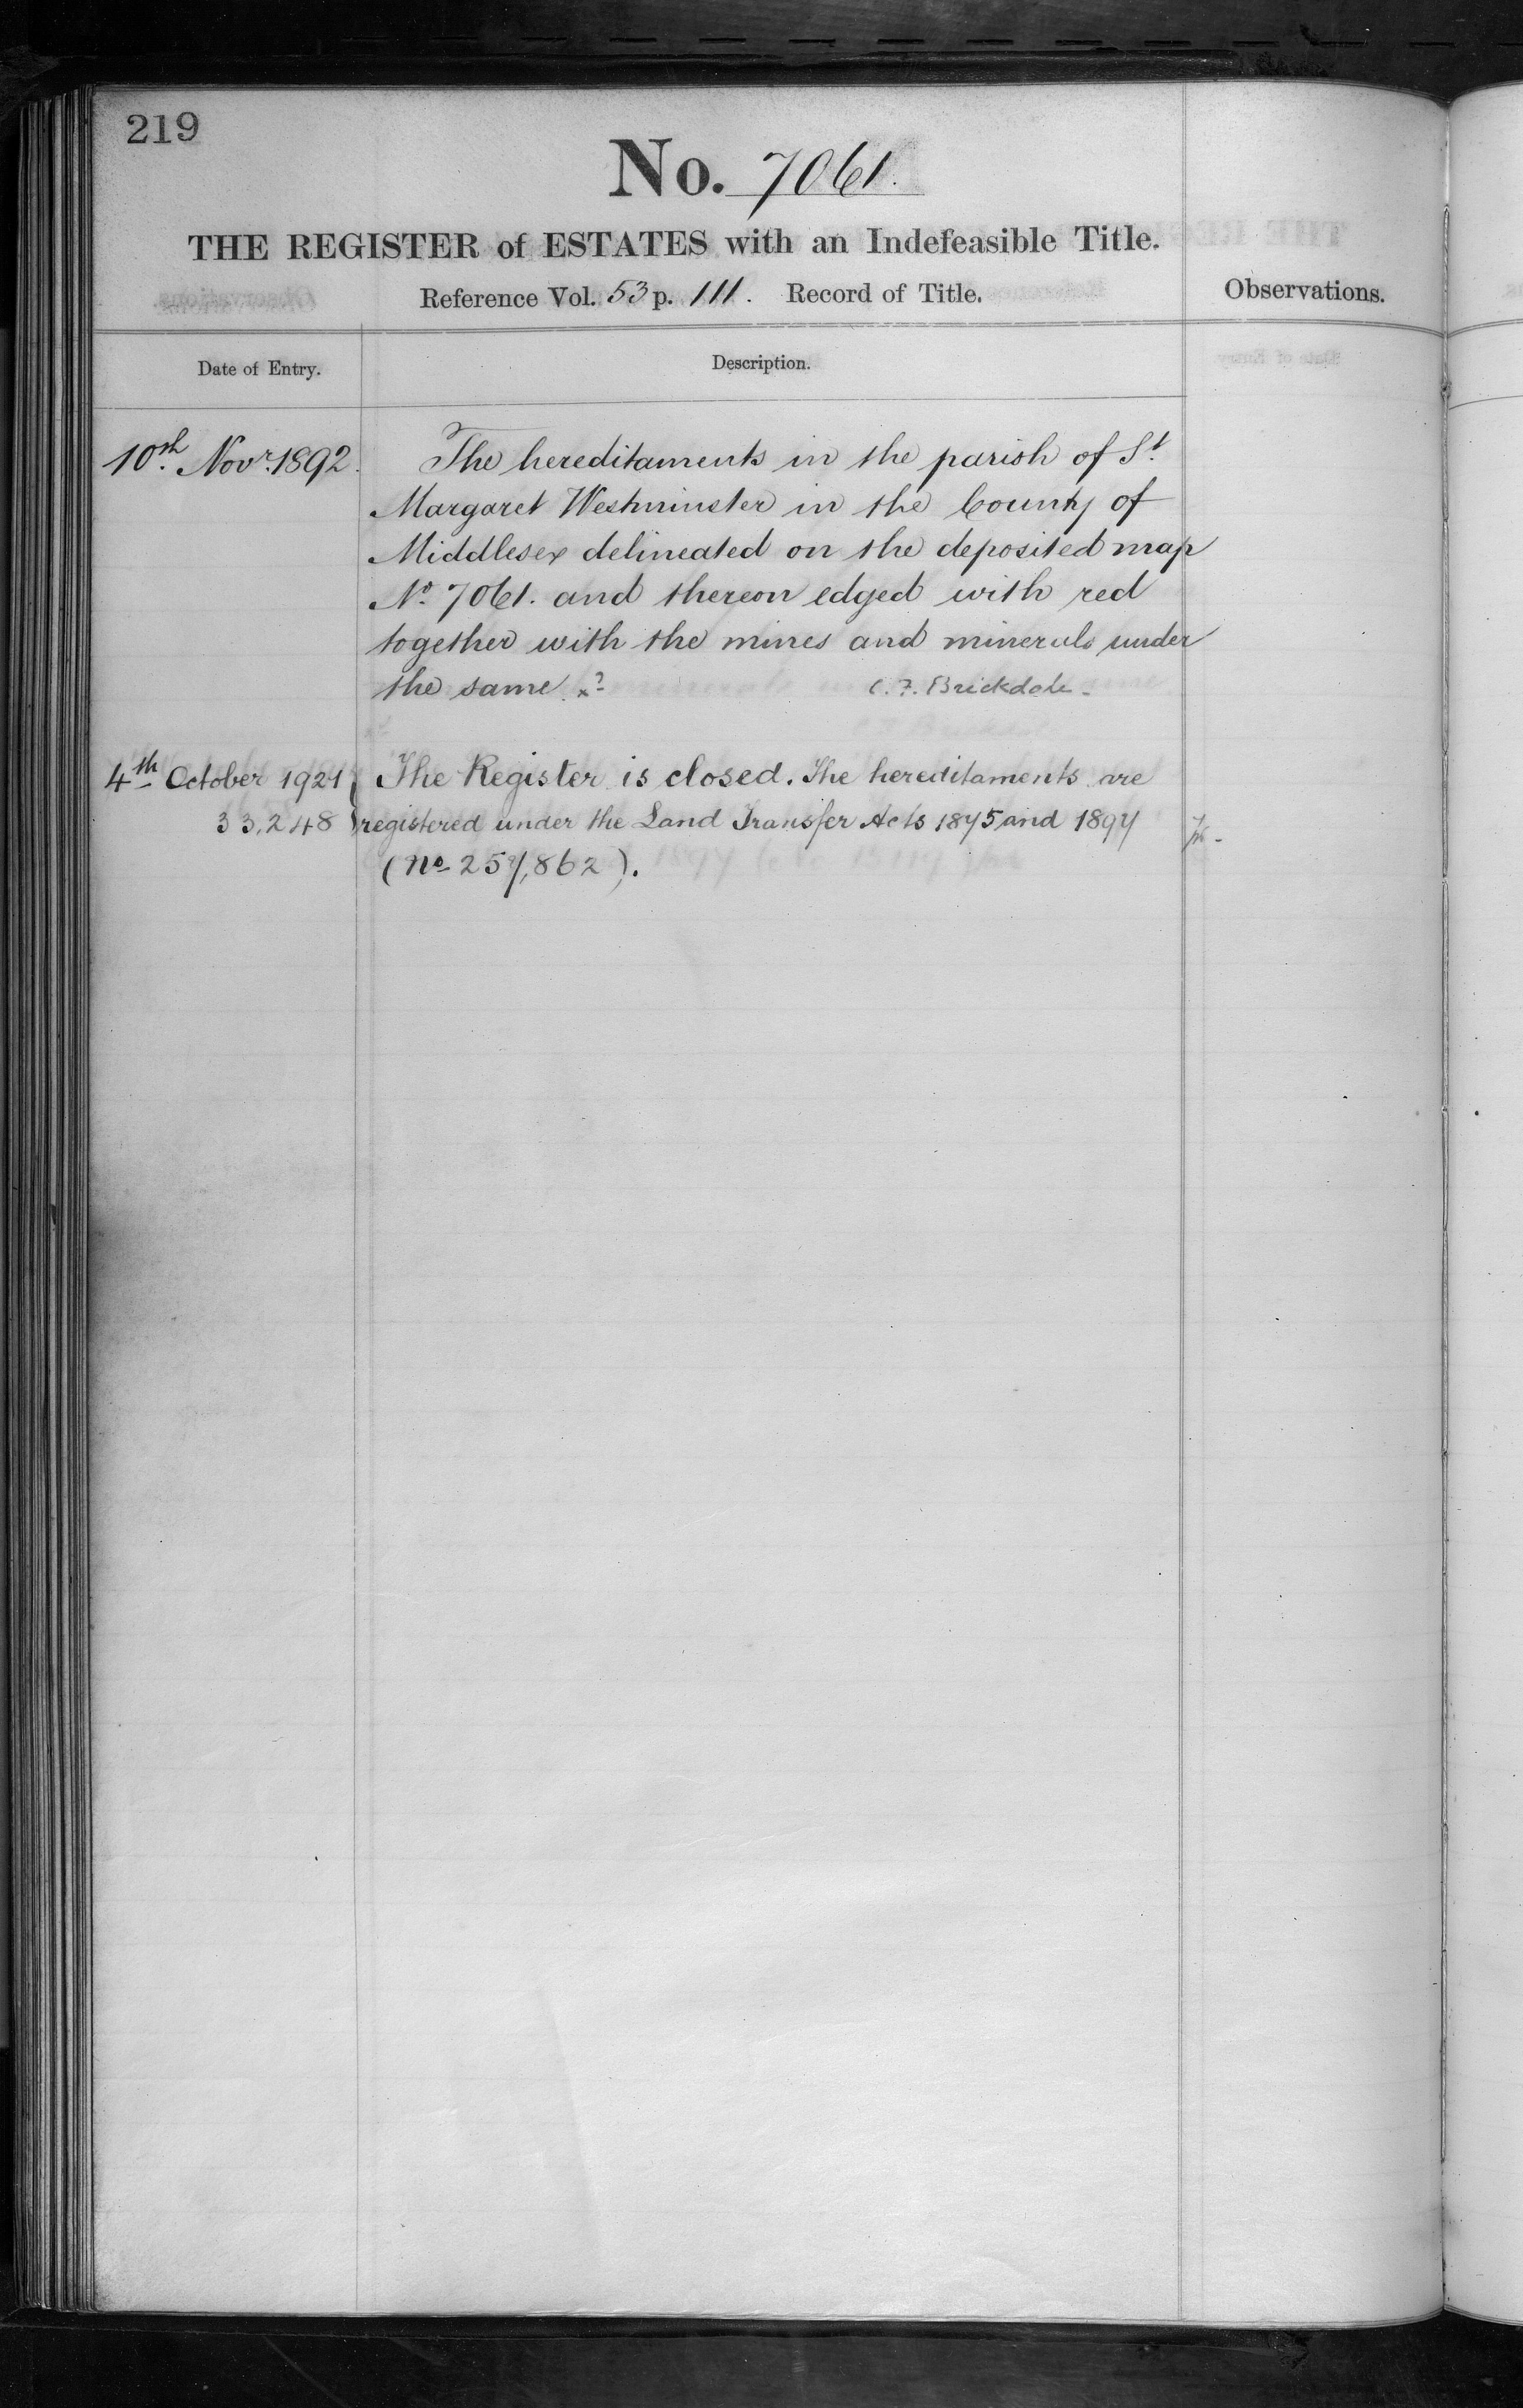 219
No. 7061.
THE REGISTER of ESTATES with an Indefeasible Title.
Reference Vol. 53 p. 111. Record of Title.
Observations.
Date of Entry.
Description.
10th Novr. 1892.
The hereditaments in the parish of St.
Margaret Westminster in the County of
Middlesex delineated on the deposited map
No. 7061. and thereon edged with red
together with the mines and minerals under
the same.
C. F. Brickdale.
4th October 1921
33,248
The Register is closed. The hereditaments are
registered under the Land Transfer Acts 1875 and 1897
(No 257,862).